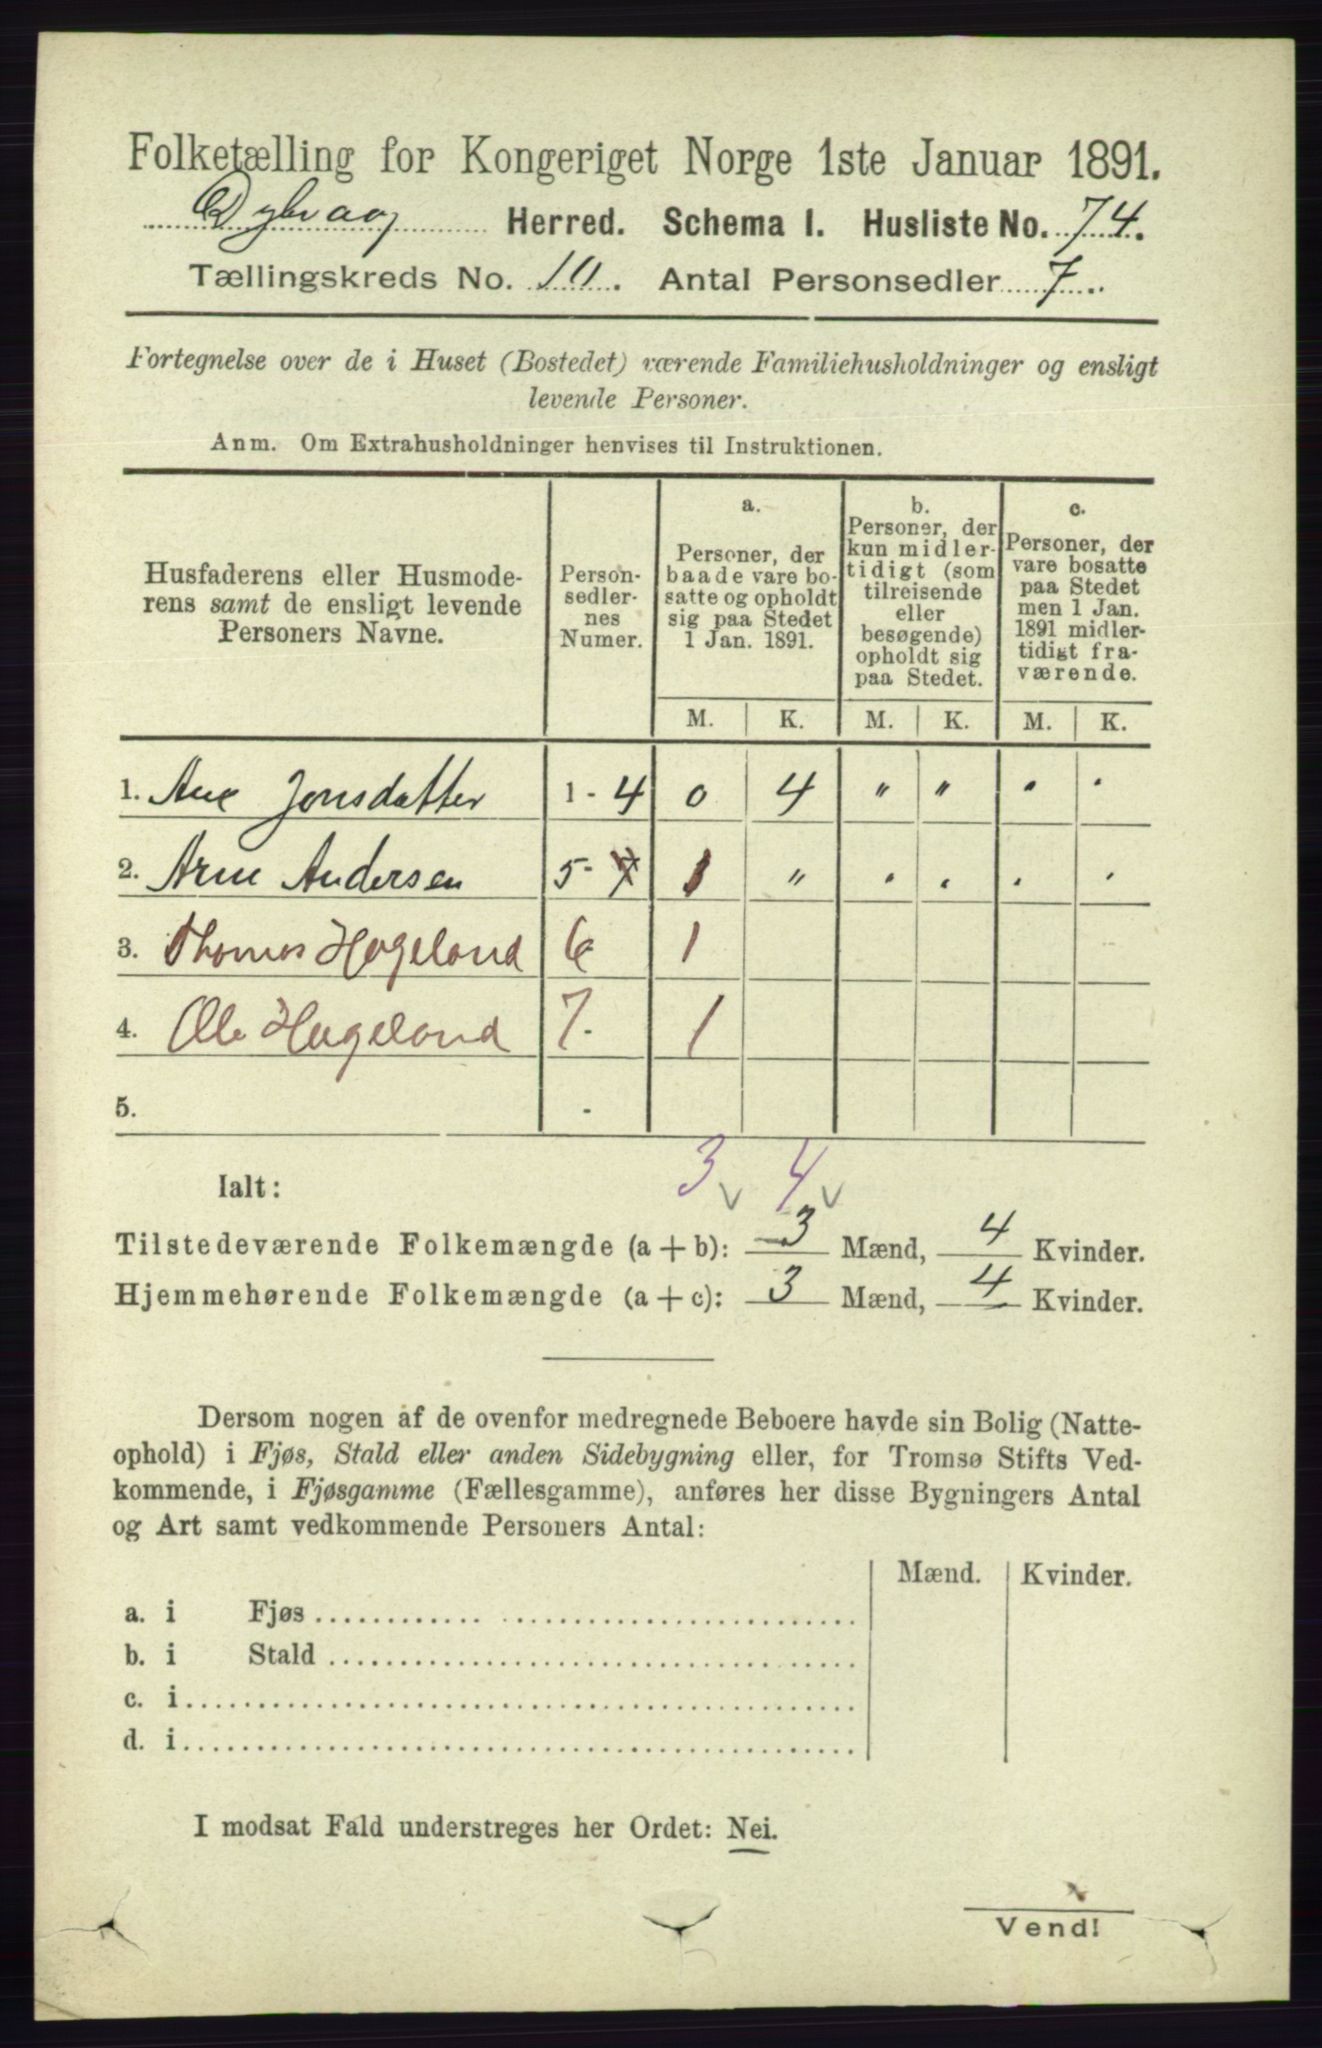 Folketælling for Kongeriget Norge 1ste Januar 1891.
Dybvaag Herred. Schema I. Husliste No. 74.
Tællingskreds No. 10. Antal Personsedler 7.
Fortegnelse over de i Huset (Bostedet) værende Familiehusholdninger og ensligt
levende Personer.
Anm. Om Extrahusholdninger henvises til Instruktionen.
Husfaderens eller Husmode-
rens samt de ensligt levende
Personers Navne.
Person-
sedler-
nes
Numer.
a.
Personer, der
baade vare bo-
satte og opholdt
sig paa Stedet
1 Jan. 1891.
b.
Personer, der
kun midler-
tidigt (som
tilreisende
eller
besøgende)
opholdt sig
paa Stedet.
c.
Personer, der
vare bosatte
paa Stedet
men 1 Jan.
1891 midler-
tidigt fra-
værende.
M. K. M. K. M. K.
1. Ane Jonsdatter 1 - 4 0 4 " " " "
2. Arne Andersen 5 - 7 1 " " " " "
3. Thomas Hageland 6 1
4. Ole Hageland 7. 1
5. -
3 v 4 v
Ialt:
Tilstedeværende Folkemængde (a + b): 3 Mænd, 4 Kvinder.
Hjemmehørende Folkemængde (a + c): 3 Mænd, 4 Kvinder.
Dersom nogen af de ovenfor medregnede Beboere havde sin Bolig (Natte-
ophold) i Fjøs, Stald eller anden Sidebygning eller, for Tromsø Stifts Ved-
kommende, i Fjøsgamme (Fællesgamme), anføres her disse Bygningers Antal
og Art samt vedkommende Personers Antal:
Mænd. Kvinder.
a. i Fjøs
b. i Stald
c. i
d. i
I modsat Fald understreges her Ordet: Nei.
Vend!